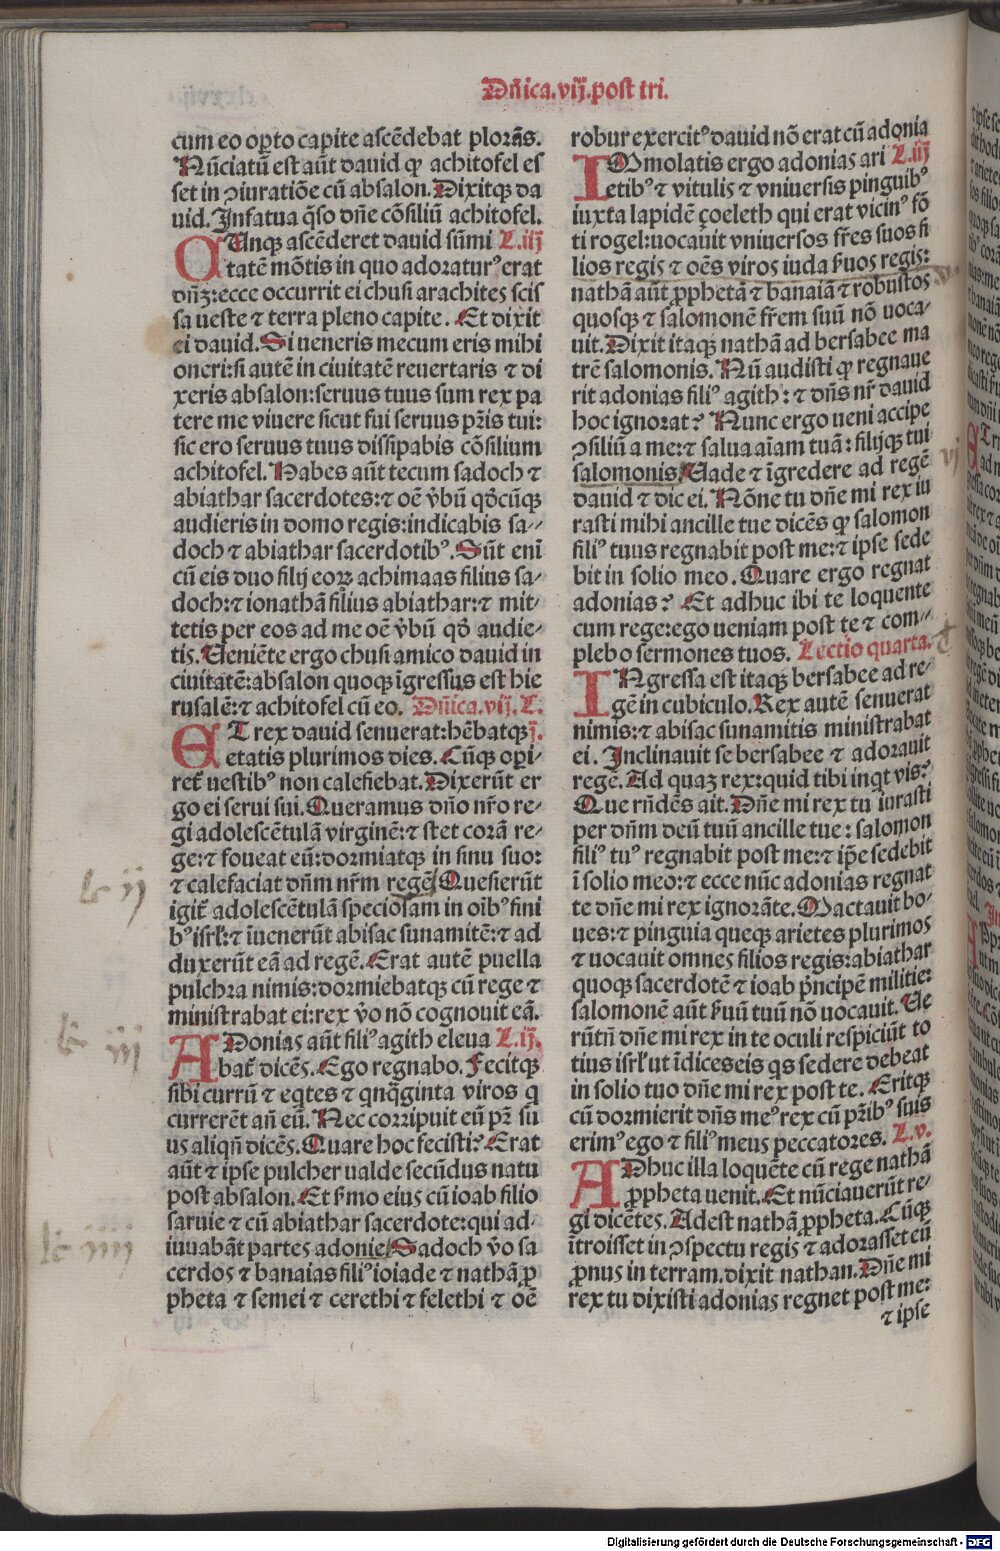 Dn̄ica.vij.post tri.
cum eo oꝑto capite ascēdebat plorās.
Nūciatū est aūt dauid ꝙ achitofel es
set in ꝯiuratiōe cū absalon. Dixitqꝫ da
uid. Infatua q̄so dn̄e cōsiliū achitofel.
CUnqꝫ ascēderet dauid sūmi L.iij
tatē mōtis in quo adoraturꝰ erat
dn̄ꝫ: ecce occurrit ei chusi arachites scis
sa ueste ⁊ terra pleno capite. Et dixit
ei dauid. Si ueneris mecum eris mihi
oneri: si autē in ciuitatē reuertaris ⁊ di
xeris absalon: seruus tuus sum rex pa
tere me viuere sicut fui seruus pr̄is tui:
sic ero seruus tuus dissipabis cōsilium
achitofel. Habes aūt tecum sadoch ⁊
abiathar sacerdotes: ⁊ oē v̄bū qd̄cūqꝫ
audieris in domo regis: indicabis sa-
doch ⁊ abiathar sacerdotibꝰ. Sūt enī
cū eis duo filij eoꝝ achimaas filius sa-
doch: ⁊ ionathā filius abiathar: ⁊ mit-
tetis per eos ad me oē v̄bū qd̄ audie-
tis. Ueniēte ergo chusi amico dauid in
ciuitatē: absalon quoqꝫ īgressus est hie
rusalē: ⁊ achitofel cū eo. Dn̄ica.vij. L.
ET rex dauid senuerat: hēbatqꝫ j.
etatis plurimos dies. Cūqꝫ oꝑi-
ret᷑ uestibꝰ non calefiebat. Dixerūt er
go ei serui sui. Queramus dn̄o nr̄o re-
gi adolescētulā virginē: ⁊ stet corā re-
ge: ⁊ foueat eū: dormiatqꝫ in sinu suo:
⁊ calefaciat dn̄m nr̄m regē. Quesierūt
igit᷑ adolescētulā speciosam in oībꝰ fini
bꝰ isrl̄: ⁊ īuenerūt abisac sunamitē: ⁊ ad
duxerūt eā ad regē. Erat autē puella
pulchra nimis: dormiebatqꝫ cū rege ⁊
ministrabat ei: rex v̄o nō cognouit eā.
ADonias aūt filiꝰ agith eleua L.ij.
bat᷑ dicēs. Ego regnabo. Fecitqꝫ
sibi currū ⁊ eq̄tes ⁊ qnq̄ginta viros q̄
currerēt an̄ eū. Nec corripuit eū pr̄ su
us aliqn̄ dicēs. Quare hoc fecisti? Erat
aūt ⁊ ipse pulcher ualde secūdus natu
post absalon. Et s̄mo eius cū ioab filio
saruie ⁊ cū abiathar sacerdote: qui ad-
iuuabāt partes adonie. Sadoch v̄o sa
cerdos ⁊ banaias filiꝰ ioiade ⁊ nathā ꝓ
pheta ⁊ semei ⁊ cerethi ⁊ felethi ⁊ oē
robur exercitꝰ dauid nō erat cū adonia
IMmolatis ergo adonias ari L.iij
etibꝰ ⁊ vitulis ⁊ vniuersis pinguibꝰ
iuxta lapidē çoeleth qui erat vicinꝰ fō
ti rogel: uocauit vniuersos fr̄es suos fi
lios regis ⁊ oēs viros iuda s̄uos regis:
nathā aūt ꝓphetā ⁊ banaiā ⁊ robustos
quosqꝫ ⁊ salomonē fr̄em suū nō uoca-
uit. Dixit itaqꝫ nathā ad bersabee ma
trē salomonis. Nū audisti ꝙ regnaue
rit adonias filiꝰ agith: ⁊ dn̄s nr̄ dauid
hoc ignorat? Nunc ergo ueni accipe
ꝯsiliū a me: ⁊ salua aīam tuā: filijqꝫ tui
salomonis. Uade ⁊ īgredere ad regē
dauid ⁊ dic ei. Nōne tu dn̄e mi rex iu
rasti mihi ancille tue dicēs ꝙ salomon
filiꝰ tuus regnabit post me: ⁊ ipse sede
bit in solio meo. Quare ergo regnat
adonias? Et adhuc ibi te loquente
cum rege: ego ueniam post te ⁊ com-
plebo sermones tuos. Lectio quarta.
INgressa est itaqꝫ bersabee ad re-
gē in cubiculo. Rex autē senuerat
nimis: ⁊ abisac sunamitis ministrabat
ei. Inclinauit se bersabee ⁊ adorauit
regē. Ad quaꝫ rex: quid tibi inqt vis?
Que rn̄dēs ait. Dn̄e mi rex tu iurasti
per dn̄m deū tuū ancille tue: salomon
filiꝰ tuꝰ regnabit post me: ⁊ ip̄e sedebit
ī solio meo: ⁊ ecce nūc adonias regnat
te dn̄e mi rex ignorāte. Mactauit bo-
ues: ⁊ pinguia queqꝫ arietes plurimos
⁊ uocauit omnes filios regis: abiathar
quoqꝫ sacerdotē ⁊ ioab p̄ncipē militie:
salomonē aūt s̄uū tuū nō uocauit. Ue
rūtn̄ dn̄e mi rex in te oculi respiciūt to
tius isrl̄ ut īdices eis qs sedere debeat
in solio tuo dn̄e mi rex post te. Eritqꝫ
cū dormierit dn̄s meꝰ rex cū pr̄ibꝰ suis
erimꝰ ego ⁊ filiꝰ meus peccatores. L.v.
ADhuc illa loquēte cū rege nathā
ꝓpheta uenit. Et nūciauerūt re-
gi dicētes. Adest nathā ꝓpheta. Cūqꝫ
ītroisset in ꝯspectu regis ⁊ adorasset eū
ꝓnus in terram. dixit nathan. Dn̄e mi
rex tu dixisti adonias regnet post me:
⁊ ipse
lc̄ ij
lc̄ iij
lc̄ iiij
vj
Digitalisierung gefördert durch die Deutsche Forschungsgemeinschaft - DFG